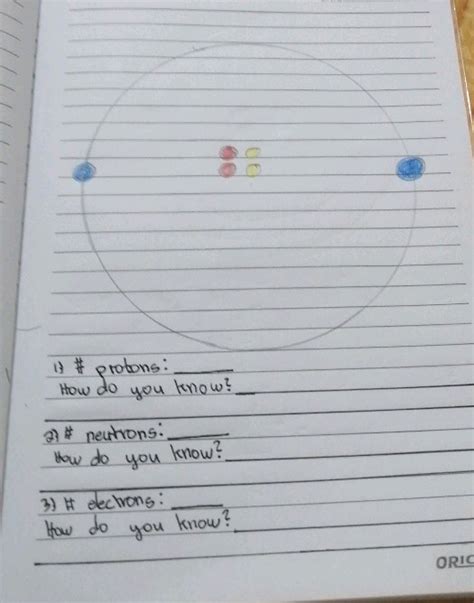 1) # protons: ______
How do you know? __
2) # neutrons: ______
How do you know? __
3) # electrons: _____
How do you know?